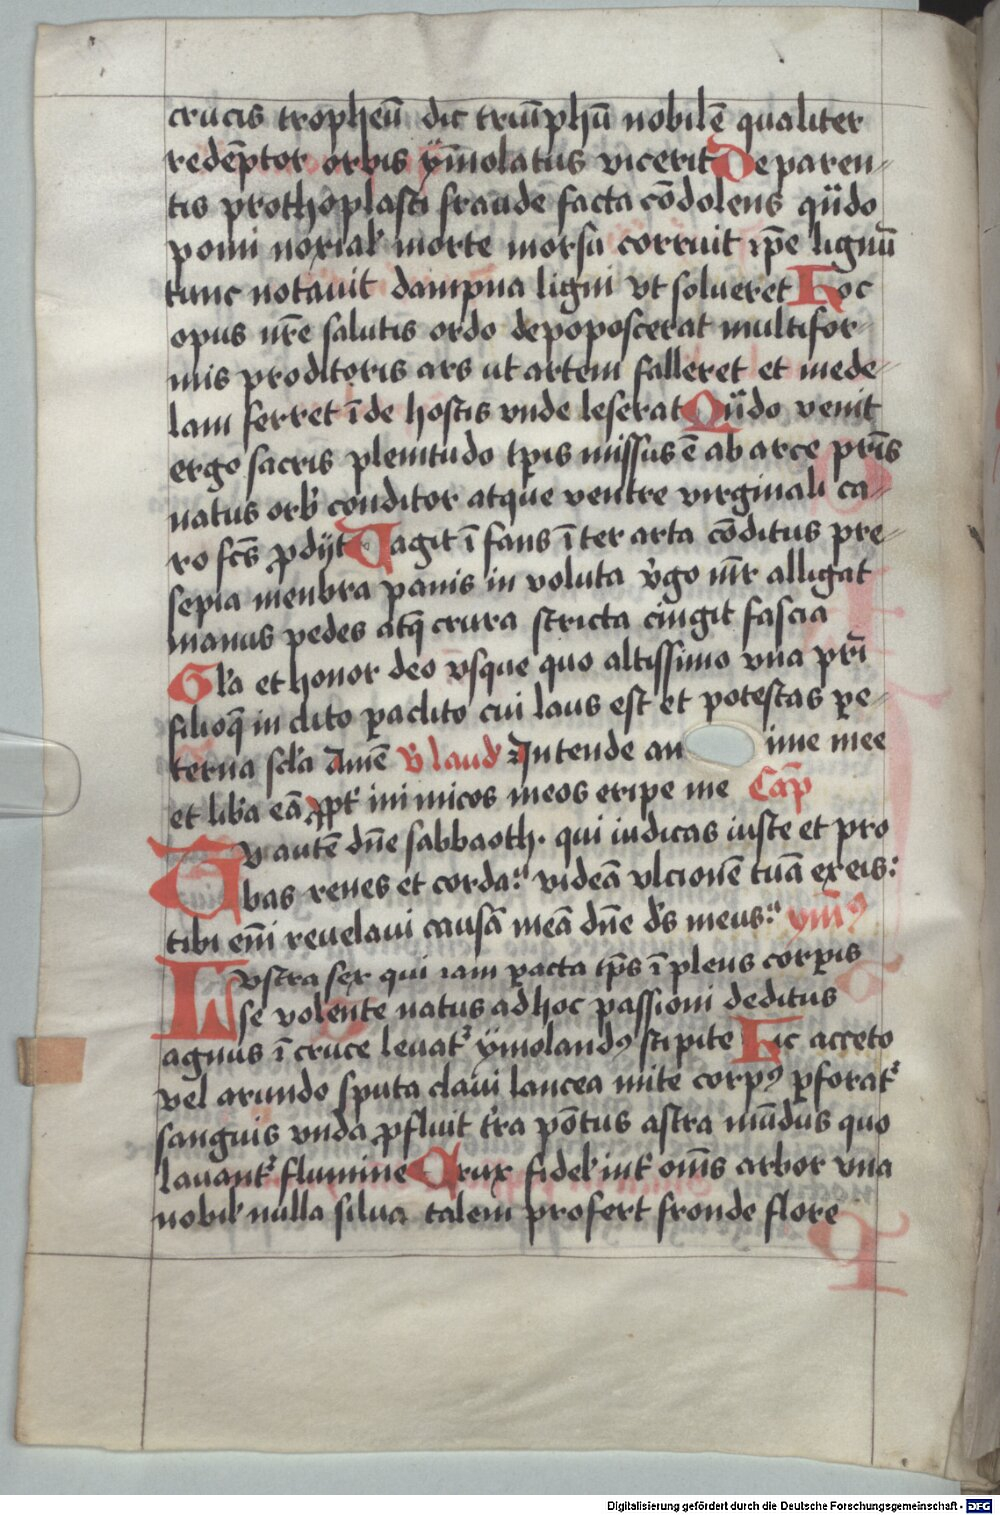 crucis tropheū dic triūphū nobilē qualiter
redēptor orbis ÿmolatus vicerit De paren-
tis prothoplasti fraude facta cōdolens qn̄do
pomi noxial' morte morsu corruit ip̄e lignū
tunc notauit dampna ligni vt solueret Hoc
opus nr̄e salutis ordo depoposcerat multifor-
mis proditoris ars ut artem falleret et mede-
lam ferret īde hostis vnde leserat Qn̄do venit
ergo sacris plenitudo tp̄is missus ē ab arce pr̄is
natus orb' conditor atque ventre virginali ca-
ro fcs̄ ꝓdijt Uagit īfans īter arta cōditus pre-
sepia menbra panis in voluta v'go mr̄ alligat
manus pedes atq̄ crura stricta cingit fascia
Gl'a et honor deo vsque quo altissimo vna pr̄i
filioq̄ in clito ꝑaclito cui laus est et potestas ꝑe-
terna scl'a Amē V laud' Intende an ime mee
et lib'a eā ꝓpt' inimicos meos eripe me Cap̄
Tu autē dn̄e sabbaoth. qui iudicas iuste et pro
bas renes et corda: videā vlcionē tuā ex eis:
tibi en̄i reuelaui causā meā dn̄e d's meus: ym̄ꝰ
Lvstra sex qui iam ꝑacta tp̄s īplens corꝑis
se volente natus ad hoc passioni deditus
agnus ī cruce leuat' ÿmolandꝰ stipite Hic acceto
vel arundo sputa claui lancea mite corpꝰ ꝑforat'
sanguis vnda ꝓfluit t'ra pōtus astra mūdus quo
lauant' flumine Crux fidel' int' om̄s arbor vna
nobil' nulla silua talem profert fronde flore
Digitalisierung gefördert durch die Deutsche Forschungsgemeinschaft - DFG